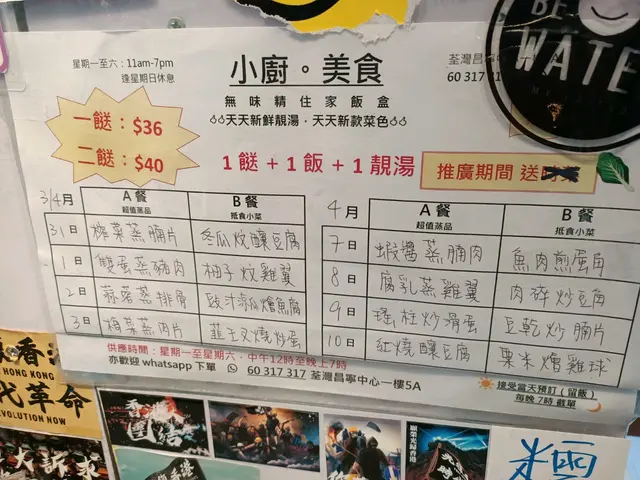 星期一至六：11am-7pm
逢星期日休息
小廚。美食
60 317 317
無味精住家飯盒
天天新鮮靚湯，天天新款菜色
一餸：$36
二餸：$40
1餸+1飯+1靚湯
推廣期間 送
3/4月
A餐
超值蒸品
B餐
抵食小菜
31日 榨菜蒸腩片 冬瓜炆釀豆腐
1日 雙蛋蒸豬肉 柚子炆雞翼
2日 蒜蓉蒸排骨
3日 梅菜蒸肉片 韮王叉燒炒蛋
4月
A餐
超值蒸品
B餐
抵食小菜
7日 蝦醬蒸腩肉 魚肉煎蛋角
8日 腐乳蒸雞翼 肉碎炒豆角
9日 瑤柱炒滑蛋 豆乾炒腩片
10日 紅燒釀豆腐 栗米燴雞球
供應時間：星期一至星期六，中午12時至晚上7時
亦歡迎 whatsapp 下單 60 317 317 荃灣昌寧中心一樓5A
接受當天預訂（留飯）
每晚7時截單
BE
WATE
香港
HONG KONG
代革命
EVOLUTION NOW
大訴求